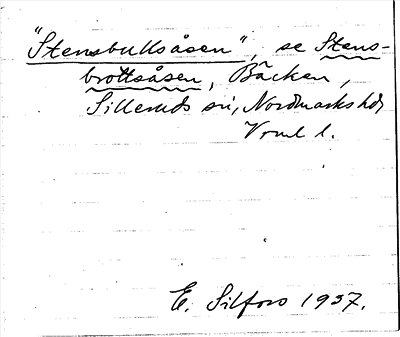 "Stensbullsåsen", se Stens-
brottsåsen, Backen,
Silleruds sn, Nordmarks hd,
Vrml l.
E. Silfors 1937.